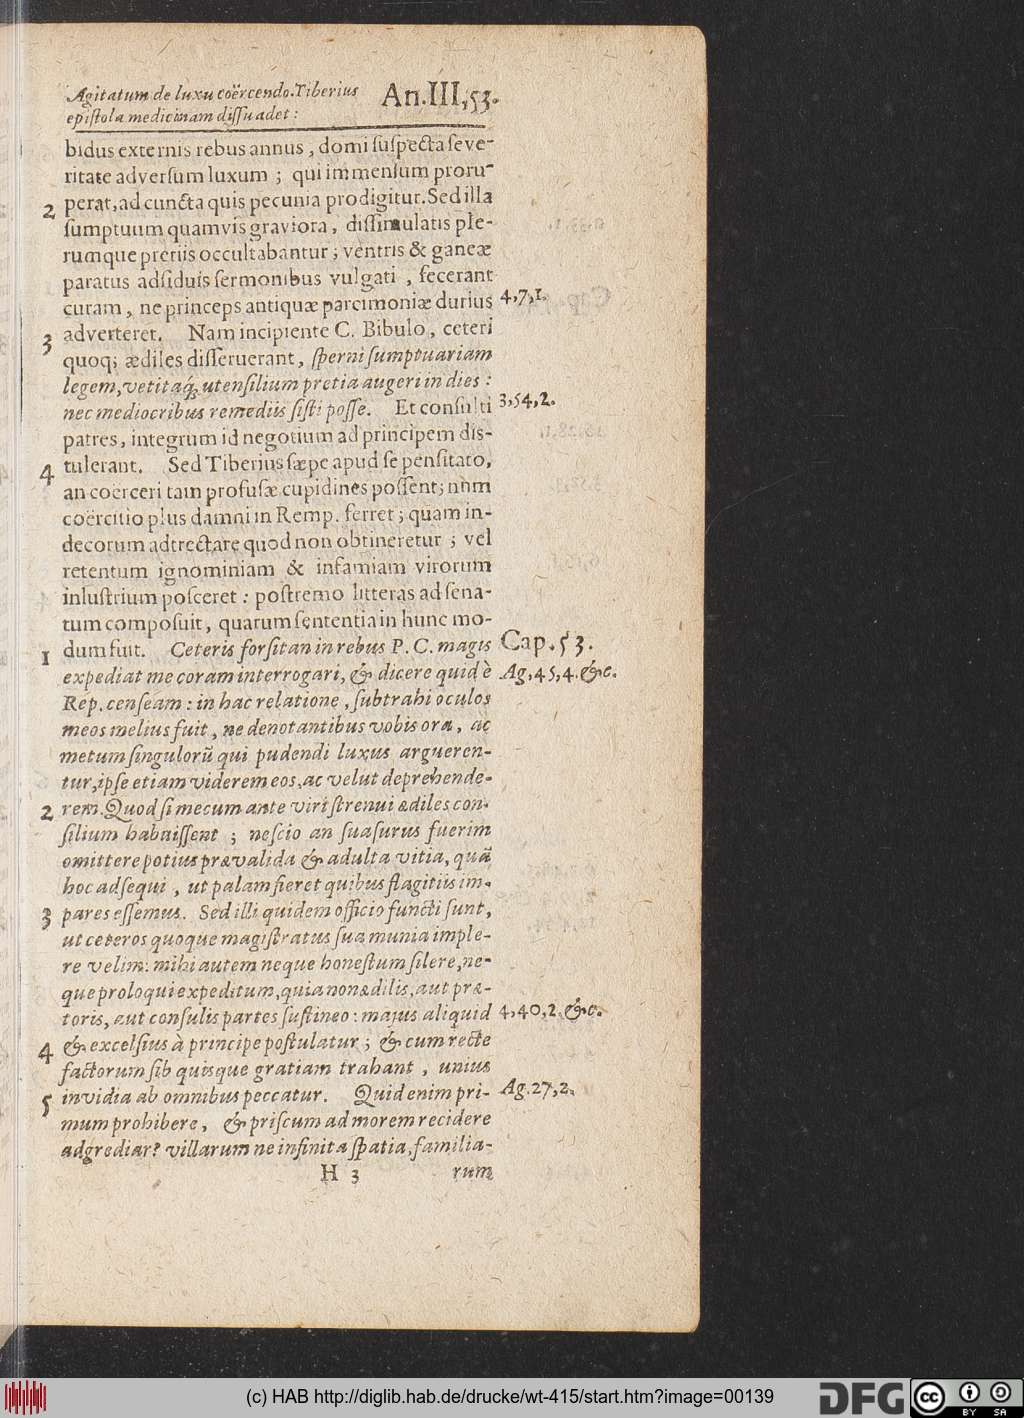 Agitatum de luxu coërcendo. Tiberius An. III, 53.
epiſtola medicinam diſſuadet:
bidus externis rebus annus, domi ſuſpecta ſeve-
ritate adverſum luxum; qui immenſum proru-
2 perat, ad cuncta quis pecunia prodigitur. Sed illa
ſumptuum quamvis graviora, diſſimulatis ple-
rumque pretiis occultabantur; ventris & ganeæ
paratus adſiduis ſermonibus vulgati, fecerant
curam, ne princeps antiquæ parcimoniæ durius 4, 7, 1.
3 adverteret. Nam incipiente C. Bibulo, ceteri
quoq; ædiles diſſeruerant, ſperni ſumptuariam
legem, vetitaq́; utenſilium pretia augeri in dies:
nec mediocribus remediis ſiſti poſſe. Et conſulti 3, 54, 2.
patres, integrum id negotium ad principem diſ-
4 tulerant. Sed Tiberius ſæpe apud ſe penſitato,
an coërceri tam profuſæ cupidines poſſent; num
coërcitio plus damni in Remp. ferret; quam in-
decorum adtrectare quod non obtineretur; vel
retentum ignominiam & infamiam virorum
inluſtrium poſceret: poſtremo litteras ad ſena-
tum compoſuit, quarum ſententia in hunc mo-
1 dum fuit. Ceteris forſitan in rebus P. C. magis Cap. 53.
expediat me coram interrogari, & dicere quid è Ag, 45, 4. &c.
Rep. cenſeam: in hac relatione, ſubtrahi oculos
meos melius fuit, ne denotantibus vobis ora, ac
metum ſingulorũ qui pudendi luxus argueren-
tur, ipſe etiam viderem eos, ac velut deprehende-
2 rem. Quod ſi mecum ante viri ſtrenui ædiles con-
ſilium habuiſſent; neſcio an ſuaſurus fuerim
omittere potius prævalida & adulta vitia, quã
hoc adſequi, ut palam fieret quibus flagitiis im-
3 pares eſſemus. Sed illi quidem officio functi ſunt,
ut ceteros quoque magiſtratus ſua munia imple-
re velim: mihi autem neque honeſtum ſilere, ne-
que proloqui expeditum, quia non ædilis, aut præ-
toris, aut conſulis partes ſuſtineo: majus aliquid 4, 40, 2. &c.
4 & excelſius à principe poſtulatur; & cum recte
factorum ſib quisque gratiam trahant, unius
5 invidia ab omnibus peccatur. Quid enim pri- Ag. 27, 2.
mum prohibere, & priſcum ad morem recidere
adgrediar? villarum ne infinita ſpatia, familia-
H 3 rum
(c) HAB http://diglib.hab.de/drucke/wt-415/start.htm?image=00139
DFG
cc BY SA